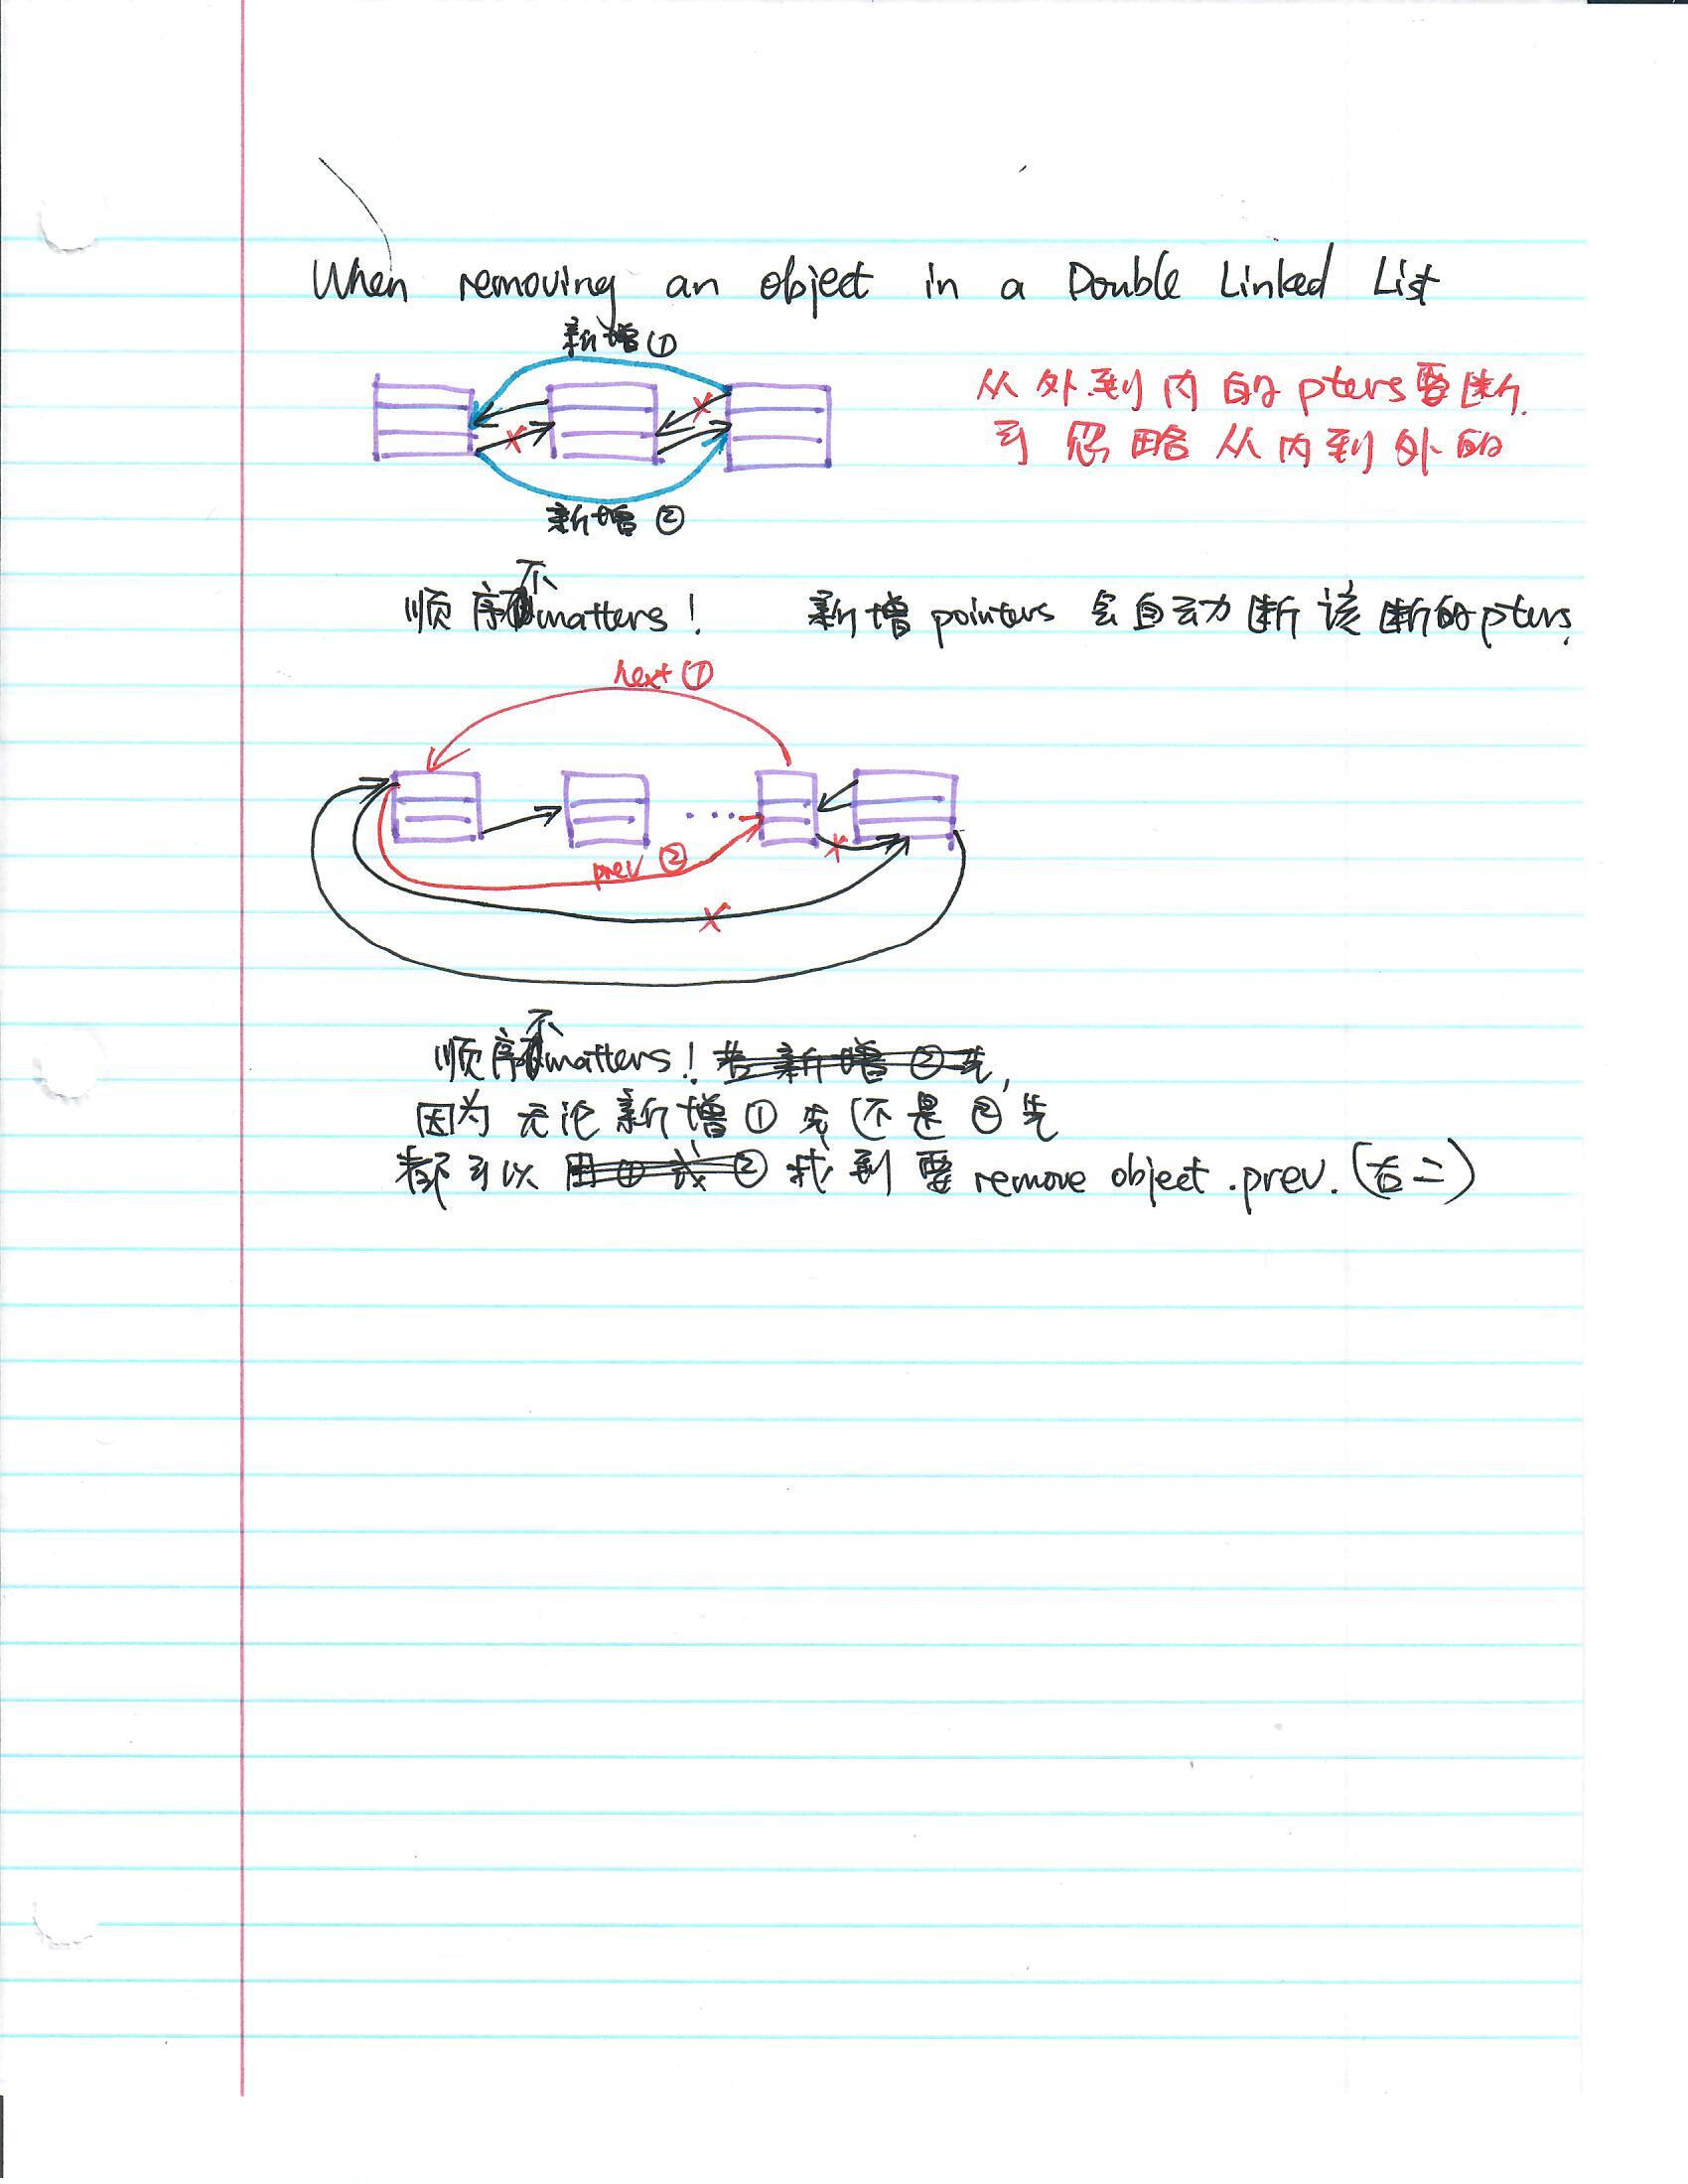 When removing an object in a Double Linked List
新增①
从外到内的pters要断.
可忽略从内到外的
新增②
顺序不matters! 新增pointers会自动断该断的pters.
next①
prev②
顺序不matters! 若新增②先,
因为无论新增①先还是②先
都可以用①或②找到要remove object.prev.(右二)